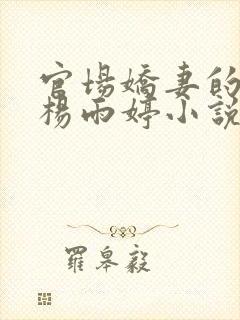 官場嬌妻的
楊雨婷小說
羅皋毅